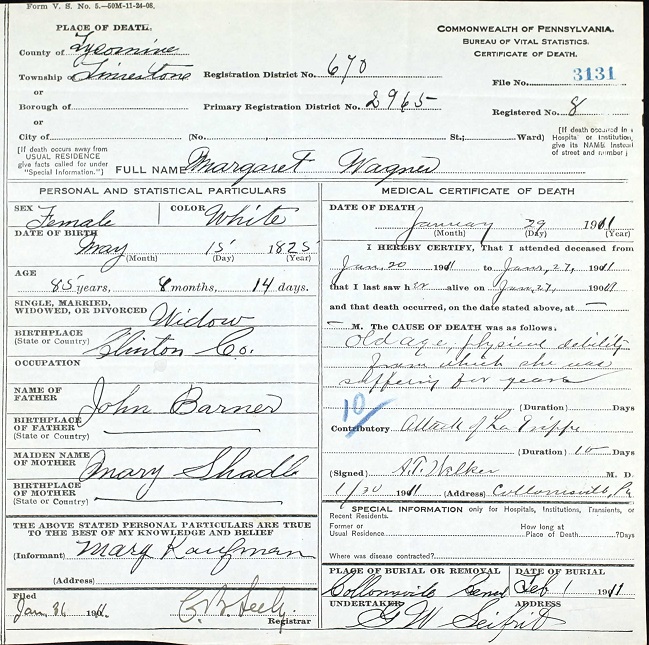 Form V. S. No. 5.—50M-11-24-08.
PLACE OF DEATH.
County of Lycoming
Township of Limestone
or
Borough of
or
City of (No. St.; Ward)
COMMONWEALTH OF PENNSYLVANIA.
BUREAU OF VITAL STATISTICS.
CERTIFICATE OF DEATH.
Registration District No. 670
File No. 3131
Primary Registration District No. 2965
Registered No. 8
[If death occurs away from
USUAL RESIDENCE
give facts called for under
"Special Information."]
[If death occurred in a
Hospital or Institution,
give its NAME instead
of street and number.]
FULL NAME Margaret Wagner
PERSONAL AND STATISTICAL PARTICULARS
SEX Female COLOR White
DATE OF BIRTH May 15 1825
(Month) (Day) (Year)
AGE
85 years, 8 months, 14 days.
SINGLE, MARRIED,
WIDOWED, OR DIVORCED Widow
BIRTHPLACE
(State or Country) Clinton Co.
OCCUPATION
NAME OF
FATHER John Barner
BIRTHPLACE
OF FATHER
(State or Country)
MAIDEN NAME
OF MOTHER Mary Shadle
BIRTHPLACE
OF MOTHER
(State or Country)
THE ABOVE STATED PERSONAL PARTICULARS ARE TRUE
TO THE BEST OF MY KNOWLEDGE AND BELIEF
(Informant) Mary Kaufman
(Address)
Filed
Jan. 31 1911 C. B. Seely
Registrar
MEDICAL CERTIFICATE OF DEATH
DATE OF DEATH
January 29 1911
(Month) (Day) (Year)
I HEREBY CERTIFY, That I attended deceased from
Jan. 20 1911 to Jan. 27, 1911
that I last saw her alive on Jan. 27, 1911
and that death occurred, on the date stated above, at —
— M. The CAUSE OF DEATH was as follows:
Old age, physical debility
from which she was
suffering for years
(Duration) Days
10
Contributory Attack of La Grippe
(Duration) 15 Days
(Signed) A.T. Walker M. D.
1/30 1911 (Address) Collomsville, Pa
SPECIAL INFORMATION only for Hospitals, Institutions, Transients, or
Recent Residents.
Former or
Usual Residence
How long at
Place of Death ? Days
Where was disease contracted?
PLACE OF BURIAL OR REMOVAL DATE OF BURIAL
Collomsville Feb 1 1911
UNDERTAKER ADDRESS
G W Seifrit